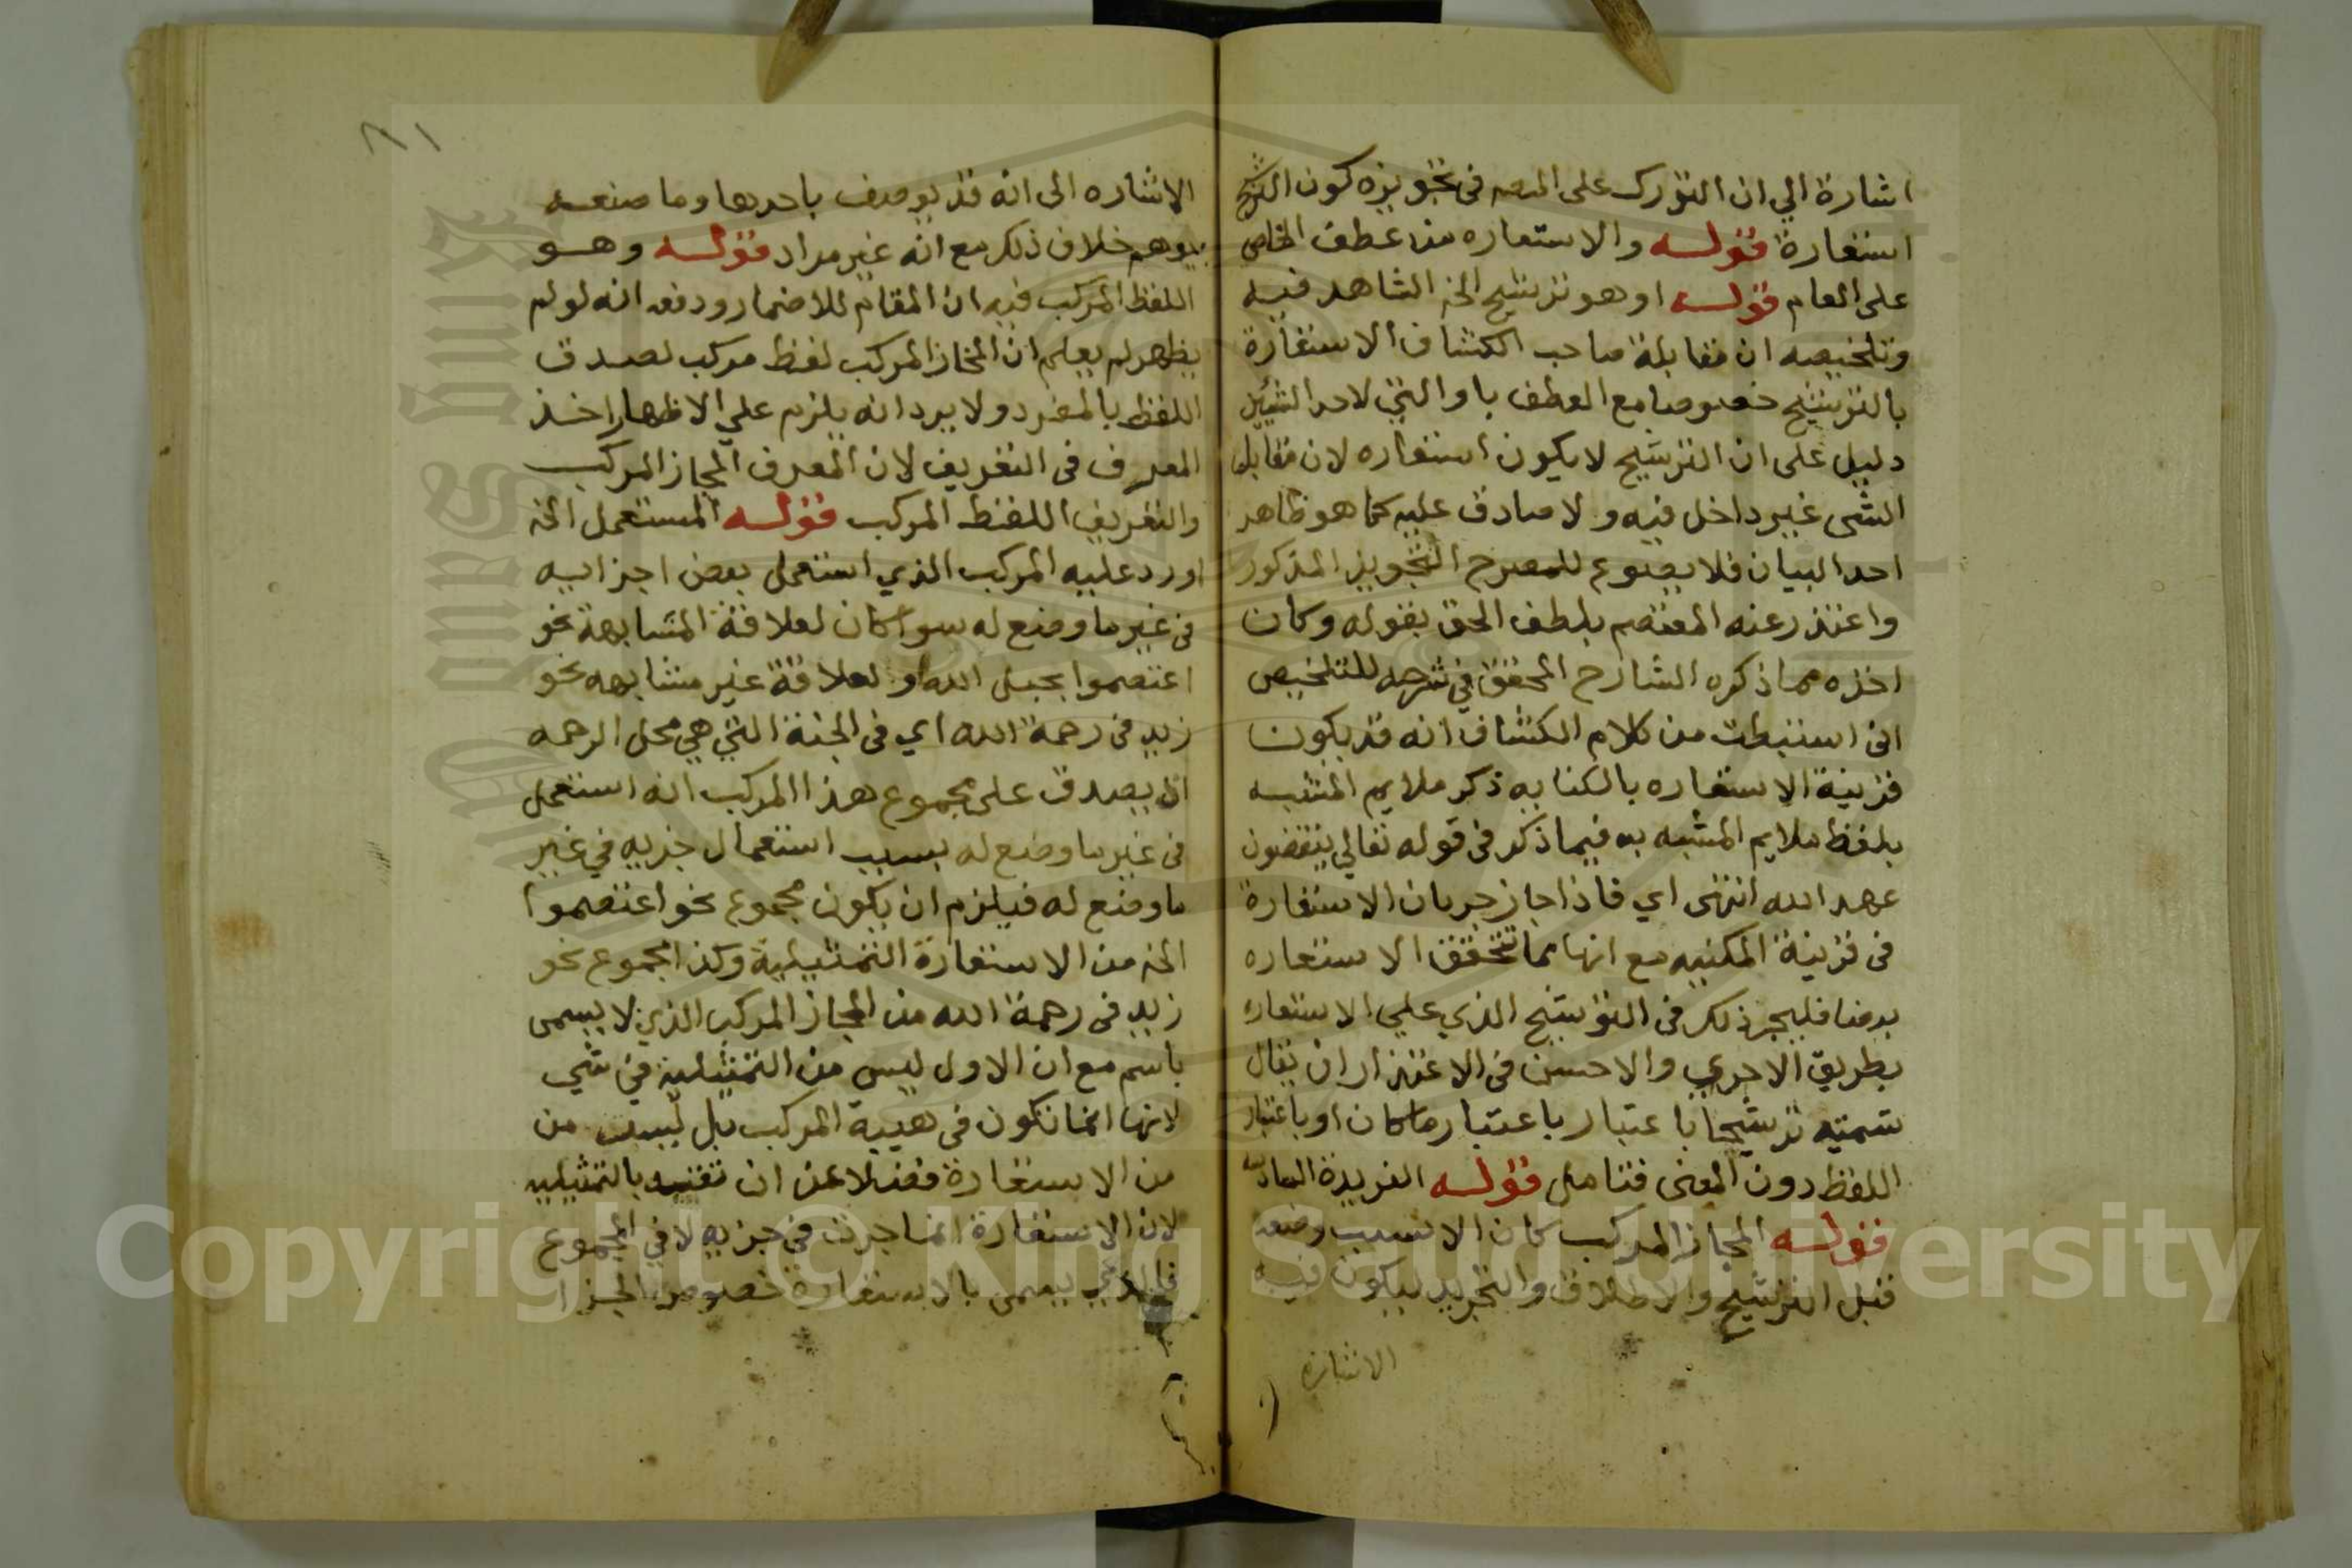 اشارة الي ان التورك على المصـ في تجويزه كون الترشيح
استعارة قوله والاستعاره من عطف الخاص
على العام قوله او هو ترشيح الخ الشاهد فيه
وتلخيصه ان مقابلة صاحب الكشاف الاستعارة
بالترشيح خصوصا مع العطف باو التي لاحد الشيئين
دليل على ان الترشيح لا يكون استعاره لان مقابل
الشي غير داخل فيه ولا صادق عليه كما هو ظاهر
احد البيان فلا يصوع للمصرح التجويز المذكور
واعتذر عنه المعتصم بلطف الحق بقوله وكان
اخذه مما ذكره الشارح المحقق في شرحه للتلخيص
اني استنبطت من كلام الكشاف انه قد يكون
قرينة الاستعاره بالكنايه ذكر ملايم المشبه
بلفظ ملايم المشبه به فيما ذكر في قوله تعالي ينقضون
عهد الله انتهى اي فاذا جاز جريان الاستعارة
في قرينة المكنيه مع انها مما تحقق الاستعاره
فليجز ذلك في الترشيح الذي علي الاستعاره
بطريق الاحري والاحسن في الاعتذار ان يقال
سمتيه ترشيحا باعتبار باعتبار ما كان او باعتبار
اللفظ دون المعنى فتامل قوله الفريدة السادسه
قوله المجاز المركب كان الانسب وضعه
قبل الترشيح والاطلاق والتجريد ليكون فيه
الاشارة
٨١
الاشاره الى انه قد يوصف باحدها وما صنعه
يوهم خلاف ذلك مع انه غير مراد قوله وهو
اللفظ المركب فيه ان المقام للاضمار ودفعه انه لو لم
يظهر لم يعلم ان المجاز المركب لفظ مركب لصدق
اللفظ بالمفرد ولا يرد انه يلزم علي الاظهار اخذ
المعرف في التعريف لان المعرف المجاز المركب
والتعريف اللفظ المركب قوله المستعمل الخ
اورد عليه المركب الذي استعمل بعض اجزايه
في غير ما وضع له سوا كان لعلاقة المشابهة نحو
اعتصموا بحبل الله او لعلاقة غير مشابهه نحو
زيد في رحمة الله اي في الجنة التي هي محل الرحمه
اذ يصدق على مجموع هذا المركب انه استعمل
في غير ما وضع له بسبب استعمال جزيه في غير
ما وضع له فيلزم ان يكون مجموع نحو اعتصموا
الخ من الاستعارة التمثيلية وكذا مجموع نحو
زيد في رحمة الله من المجاز المركب الذي لا يسمى
باسم مع ان الاول ليس من التمثيلية في شي
لانها انما تكون في هيية المركب بل ليست من
من الاستعارة فضلا عن ان تقيد بالتمثيليه
لان الاستعارة انما جرت في جزيه لا في المجموع
فالذي يسمى بالاستعارة خصوص الجزا